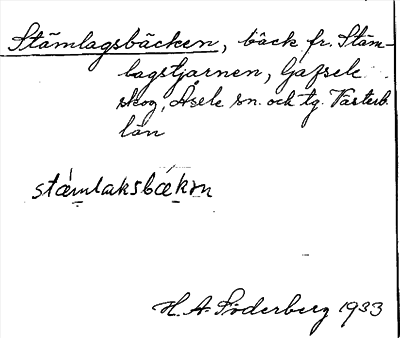 Stämlagsbäcken, bäck fr. Stäm-
lagstjärnen, Gafsele
skog, Åsele sn. och tg. Västerb.
län
stæ̀mlaksbækən
H. A. Söderberg 1933